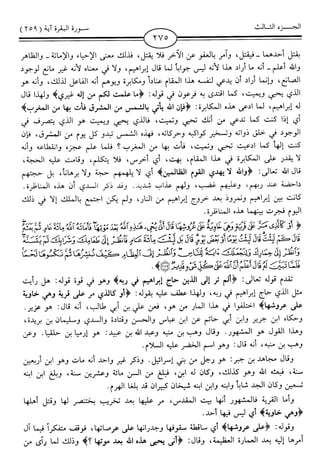 الجـــزء الثـــالـــث
سورة البقرة آية (٢٥٩)
٢٧٥
بقتل أحدهما ـ فيقتل، وأمر بالعفو عن الآخر فلا يقتل، فذلك معنى الإحياء والإماتة ـ والظاهر
والله أعلم ـ أنه ما أراد هذا لأنه ليس جواباً لما قال إبراهيم، ولا في معناه لأنه غير مانع لوجود
الصانع، وإنما أراد أن يدعي لنفسه هذا المقام عناداً ومكابرة ويوهم أنه الفاعل لذلك، وأنه هو
الذي يحيي ويميت، كما اقتدى به فرعون في قوله: ﴿ما علمت لكم من إله غيري﴾ ولهذا قال
له إبراهيم، لما ادعى هذه المكابرة: ﴿فإن الله يأتي بالشمس من المشرق فأت بها من المغرب﴾
أي إذا كنت كما تدعي من أنك تحيي وتميت، فالذي يحيي ويميت هو الذي يتصرف في
الوجود في خلق ذواته وتسخير كواكبه وحركاته، فهذه الشمس تبدو كل يوم من المشرق، فإن
كنت إلهاً كما ادعيت تحيي وتميت، فأت بها من المغرب؟ فلما علم عجزه وانقطاعه وأنه
لا يقدر على المكابرة في هذا المقام، بهت، أي أخرس، فلا يتكلم، وقامت عليه الحجة،
قال الله تعالى: ﴿والله لا يهدي القوم الظالمين﴾ أي لا يلهمهم حجة ولا برهاناً، بل حجتهم
داحضة عند ربهم، وعليهم غضب، ولهم عذاب شديد. وقد ذكر السدي أن هذه المناظرة،
كانت بين إبراهيم ونمروذ بعد خروج إبراهيم من النار، ولم يكن اجتمع بالملك إلا في ذلك
اليوم فجرت بينهما هذه المناظرة.
تقدم قوله تعالى: ﴿ألم تر إلى الذين حاج إبراهيم في ربه﴾ وهو في قوة قوله: هل رأيت
مثل الذي حاج إبراهيم في ربه، ولهذا عطف عليه بقوله: ﴿أو كالذي مر على قرية وهي خاوية
على عروشها﴾ اختلفوا في هذا المار من هو، فعن علي بن أبي طالب، أنه قال: هو عزير.
وحكاه ابن جرير وابن أبي حاتم عن ابن عباس والحسن وقتادة والسدي وسليمان بن بريدة،
وهذا القول هو المشهور. وقال وهب بن منبه وعبد الله بن عبيد: هو إرميا بن حلقيا. وعن
وهب بن منبه، أنه قال: وهو اسم الخضر عليه السلام.
وقال مجاهد بن جبر: هو رجل من بني إسرائيل. وذكر غير واحد أنه مات وهو ابن أربعين
سنة، فبعثه الله وهو كذلك، وكان له ابن، فبلغ من السن مائة وعشرين سنة، وبلغ ابن ابنه
تسعين وكان الجد شاباً وابنه وابن ابنه شيخان كبيران قد بلغا الهرم.
وأما القرية فالمشهور أنها بيت المقدس، مر عليها بعد تخريب بختنصر لها وقتل أهلها
﴿وهي خاوية﴾ أي ليس فيها أحد.
وقوله: ﴿على عروشها﴾ أي ساقطة سقوفها وجدرانها على عرصاتها، فوقف متفكراً فيما آل
أمرها إليه بعد العمارة العظيمة، وقال: ﴿أنى يحيي هذه الله بعد موتها؟﴾ وذلك لما رأى من